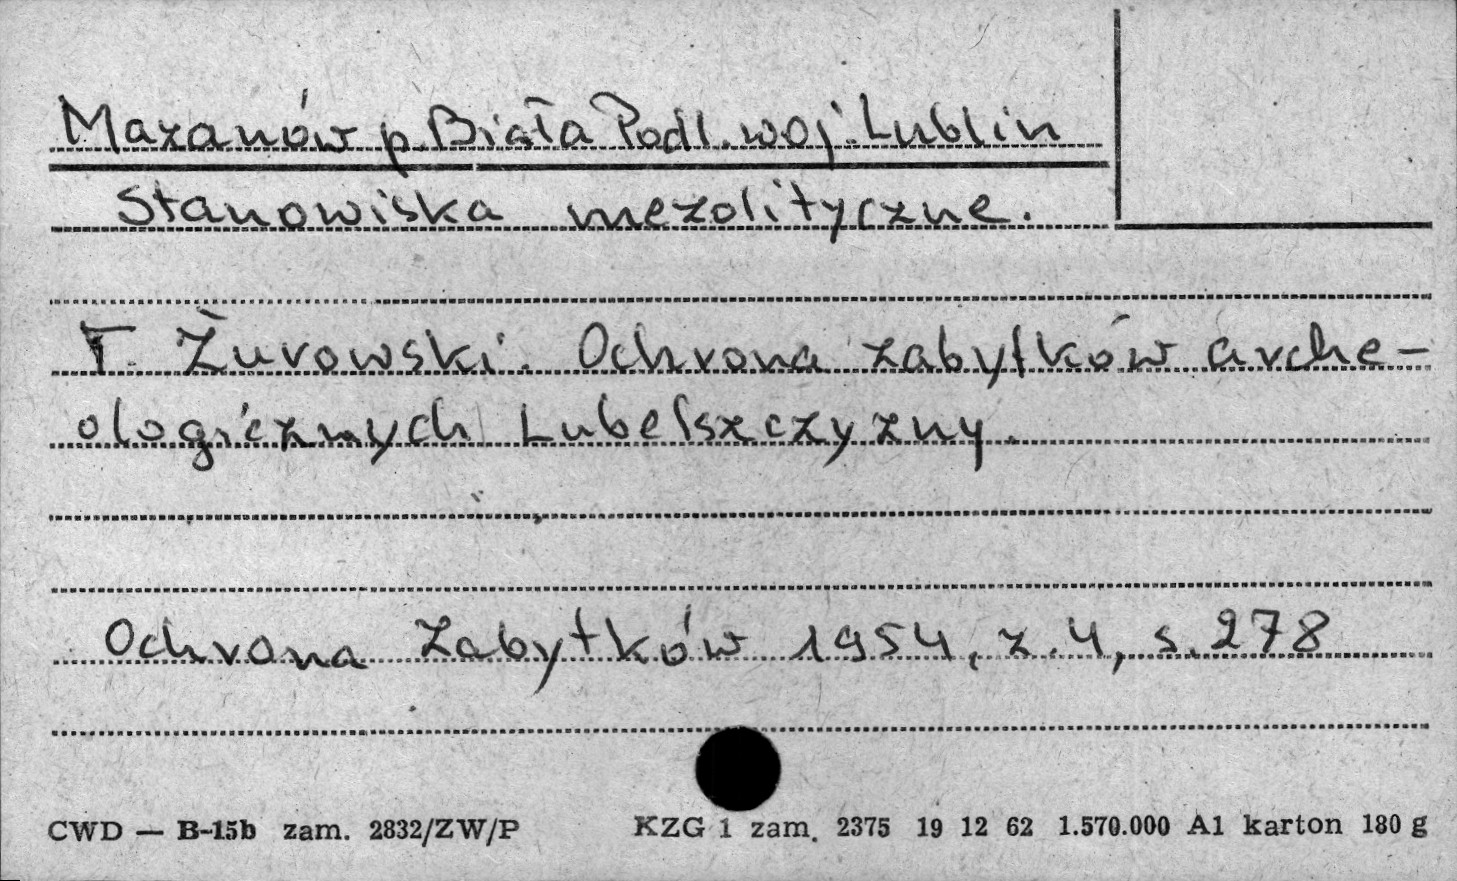 Mazanów p. Biała Podl. woj. Lublin
Stanowiska mezolityczne.
T. Żurowski. Ochrona zabytków arche-
ologicznych Lubelszczyzny.
Ochrona Zabytków 1954, z. 4, s. 278
CWD — B-15b zam. 2832/ZW/P KZG 1 zam. 2375 19 12 62 1.570.000 A1 karton 180 g